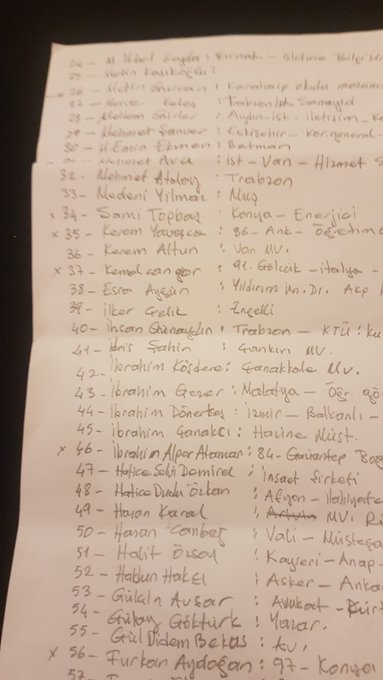 24 - M. İkbal : Şırnak - İşletme Bilgi
25 - Metin :
x 26 - Metin Gürcan : Karaharp okulu mezunu
27 - : Sanayici
28 - Meltem : Aydın - ist - iletişim -
29 - Mehmet Şanver : Eskişehir - Korgeneral
30 - M. Emin Ekmen : Batman
Mehmet Avcı : ist - Van - Hizmet S
32 - Mehmet Atalay : Trabzon
33 - Medeni Yılmaz : Muş
x 34 - Sami Topbaş : Konya - Enerjici
x 35 - Kerem Yavaşca : 86 - Ank - Öğretim
36 - Kerem Altun : Van MV.
x 37 - Kemal can gör : 91. Gölcük - italya -
38 - Esra Aygün : Yıldırım Ün. Dr. Akp
39 - ilker Çelik : Engelli
40 - İhsan Günaydın : Trabzon - KTÜ :
41 - İdris Şahin : Çankırı MV.
42 - İbrahim Köşdere : Çanakkale Mv.
43 - İbrahim Gezer : Malatya - Öğr. gö
44 - İbrahim Dönertaş : İzmir - Balkanlı -
45 - İbrahim Çanakcı : Hazine Müst.
x 46 - İbrahim Alper Ataman : 84 - Gaziantep
47 - Hatice Seki Demirel : İnşaat şirketi
48 - Hatice Dudu Özkan : Afyon - ilahiyat
49 - Hasan Karal : Artvin MV.
50 - Hasan Canbaş : Vali - Müsteşa
51 - Halit Özsoy : Kayseri - Anap -
52 - Haldun Hakel : Asker - Anka
53 - Gülçin Avşar : Avukat - Kürt
54 - Gülay Göktürk : Yazar.
55 - Gül Didem Bekas : Av.
x 56 - Furkan Aydoğan : 97 - Konya
57 -